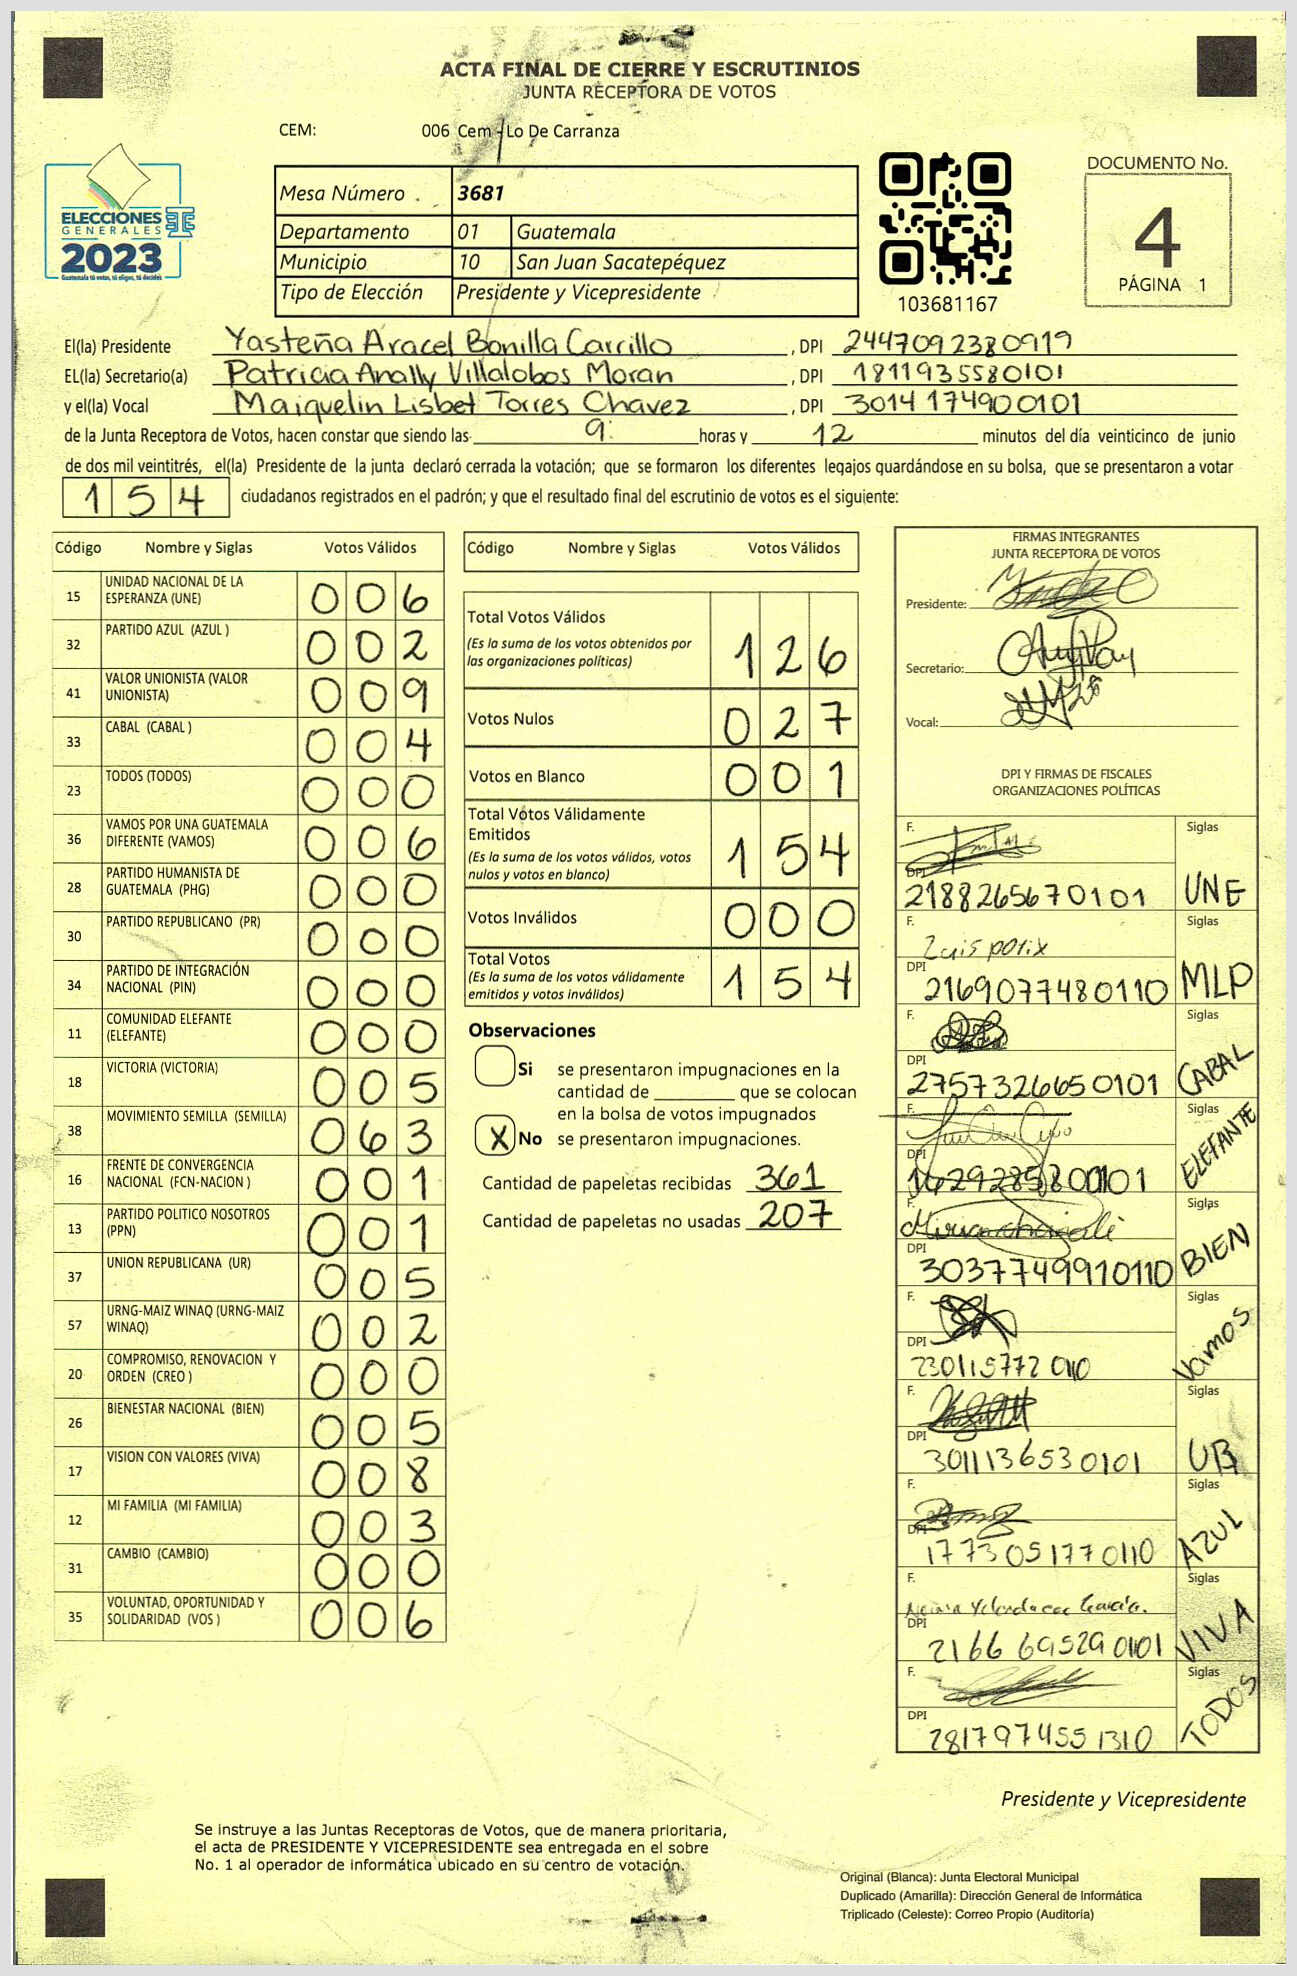 ACTA FINAL DE CIERRE Y ESCRUTINIOS
JUNTA RECEPTORA DE VOTOS
CEM: 006 Cem - Lo De Carranza
ELECCIONES
GENERALES
2023
Guatemala tú votas, tú eliges, tú decides
Mesa Número 3681
Departamento 01 Guatemala
Municipio 10 San Juan Sacatepéquez
Tipo de Elección Presidente y Vicepresidente
103681167
DOCUMENTO No.
4
PÁGINA 1
El(la) Presidente Yasteña Aracel Bonilla Carrillo, DPI 2447092380919
EL(la) Secretario(a) Patricia Anally Villalobos Moran, DPI 1811935580101
y el(la) Vocal Maiquelin Lisbet Torres Chavez, DPI 3014174900101
de la Junta Receptora de Votos, hacen constar que siendo las 9: horas y 12 minutos del día veinticinco de junio
de dos mil veintitrés, el(la) Presidente de la junta declaró cerrada la votación; que se formaron los diferentes legajos guardándose en su bolsa, que se presentaron a votar
154 ciudadanos registrados en el padrón; y que el resultado final del escrutinio de votos es el siguiente:
Código Nombre y Siglas Votos Válidos
15 UNIDAD NACIONAL DE LA ESPERANZA (UNE) 006
32 PARTIDO AZUL (AZUL ) 002
41 VALOR UNIONISTA (VALOR UNIONISTA) 009
33 CABAL (CABAL ) 004
23 TODOS (TODOS) 000
36 VAMOS POR UNA GUATEMALA DIFERENTE (VAMOS) 006
28 PARTIDO HUMANISTA DE GUATEMALA (PHG) 000
30 PARTIDO REPUBLICANO (PR) 000
34 PARTIDO DE INTEGRACIÓN NACIONAL (PIN) 000
11 COMUNIDAD ELEFANTE (ELEFANTE) 000
18 VICTORIA (VICTORIA) 005
38 MOVIMIENTO SEMILLA (SEMILLA) 063
16 FRENTE DE CONVERGENCIA NACIONAL (FCN-NACION ) 001
13 PARTIDO POLITICO NOSOTROS (PPN) 001
37 UNION REPUBLICANA (UR) 005
57 URNG-MAIZ WINAQ (URNG-MAIZ WINAQ) 002
20 COMPROMISO, RENOVACION Y ORDEN (CREO ) 000
26 BIENESTAR NACIONAL (BIEN) 005
17 VISION CON VALORES (VIVA) 008
12 MI FAMILIA (MI FAMILIA) 003
31 CAMBIO (CAMBIO) 000
35 VOLUNTAD, OPORTUNIDAD Y SOLIDARIDAD (VOS ) 006
Código Nombre y Siglas Votos Válidos
Total Votos Válidos
(Es la suma de los votos obtenidos por
las organizaciones políticas) 126
Votos Nulos 027
Votos en Blanco 001
Total Votos Válidamente
Emitidos
(Es la suma de los votos válidos, votos
nulos y votos en blanco) 154
Votos Inválidos 000
Total Votos
(Es la suma de los votos válidamente
emitidos y votos inválidos) 154
Observaciones
Si se presentaron impugnaciones en la
cantidad de ________ que se colocan
en la bolsa de votos impugnados
X No se presentaron impugnaciones.
Cantidad de papeletas recibidas 361
Cantidad de papeletas no usadas 207
FIRMAS INTEGRANTES
JUNTA RECEPTORA DE VOTOS
Presidente:
Secretario:
Vocal:
DPI Y FIRMAS DE FISCALES
ORGANIZACIONES POLÍTICAS
F. Siglas
DPI 2188265670101 UNE
F. Luis Siglas
DPI 2169077480110 MLP
F. Siglas
DPI 2757326650101 CABAL
F. Siglas
DPI ELEFANTE
F. Siglas
DPI 3037749910110 BIEN
F. Siglas
DPI 230115772 0110 Vamos
F. Siglas
DPI 3011136530101 UR
F. Siglas
DPI 1773051770110 AZUL
F. García. Siglas
DPI 2166 695290101 VIVA
F. Siglas
DPI 2817974551310 TODOS
Presidente y Vicepresidente
Se instruye a las Juntas Receptoras de Votos, que de manera prioritaria,
el acta de PRESIDENTE Y VICEPRESIDENTE sea entregada en el sobre
No. 1 al operador de informática ubicado en su centro de votación.
Original (Blanca): Junta Electoral Municipal
Duplicado (Amarilla): Dirección General de Informática
Triplicado (Celeste): Correo Propio (Auditoría)